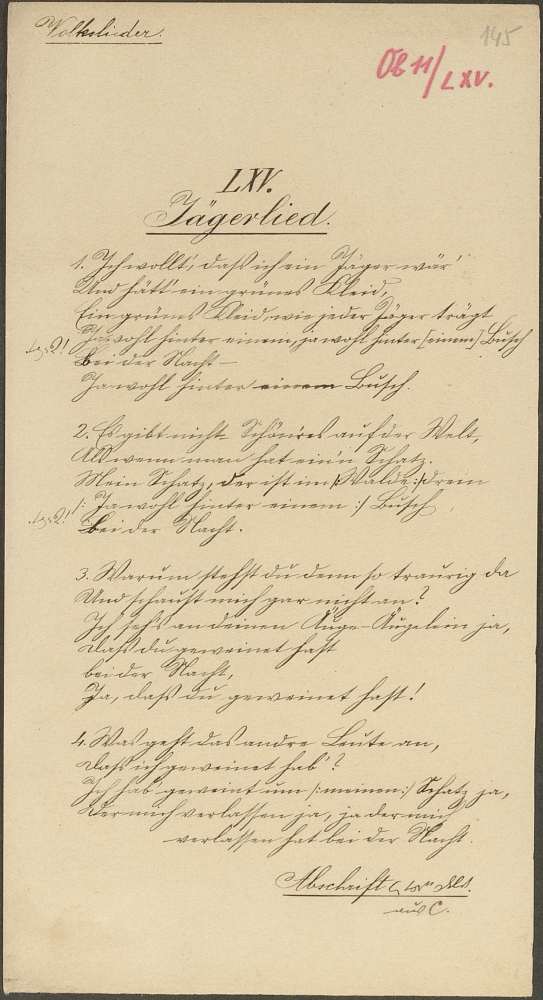 Volkslieder.
145
OB 11/LXV.
LXV.
Jägerlied.
1. Ich wollt', daß ich ein Jäger wär'
Und hätt' ein grünes Kleid,
Ein grünes Kleid, wie jeder Jäger trägt
Ja wohl hinter einem, ja wohl hinter [einem] Busch
Bei der Nacht –
Ja wohl hinter einem Busch.
2. Es gibt nichts Schön'res auf der Welt,
Als wenn man hat ein'n Schatz.
Mein Schatz, der ist im /: Walde :/ drein
/: Ja wohl hinter einem :/ Busch,
Bei der Nacht.
3. Warum stehst du denn so traurig da
Und schaust mich gar nicht an?
Ich seh's an deinen Äuge-Äugelein ja,
Daß du geweinet hast
bei der Nacht,
Ja, daß du geweinet hast!
4. Was geht das andre Leute an,
Daß ich geweinet hab'?
Ich hab' geweint um /: meinen :/ Schatz ja,
Der mich verlassen ja, ja der mich
verlassen hat bei der Nacht.
Abschrift
aus C.